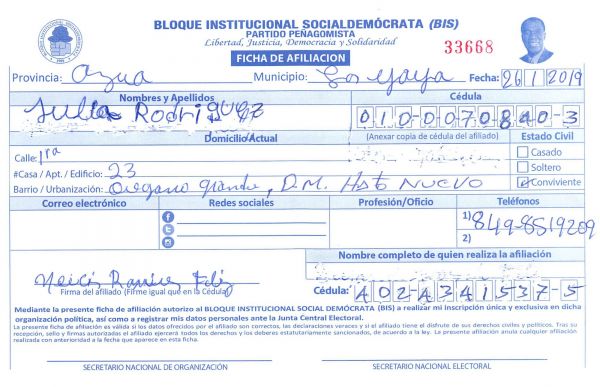 BLOQUE INSTITUCIONAL SOCIALDEMÓCRATA (BIS)
PARTIDO PEÑAGOMISTA
Libertad, Justicia, Democracia y Solidaridad
FICHA DE AFILIACION
33668
Provincia: Azua Municipio: Fecha: 26/1/2019
Nombres y Apellidos Cédula
Julia Rodriguez 010-0070840-3
Domicilio/Actual (Anexar copia de cédula del afiliado) Estado Civil
Calle: 1ra Casado
#Casa / Apt. / Edificio: 23 Soltero
Barrio / Urbanización: Oregano grande, D.M. Hato NUEVO Conviviente
Correo electrónico Redes sociales Profesión/Oficio Teléfonos
1) 849-8519209
2)
Nombre completo de quien realiza la afiliación
Ramirez Feliz
Firma del afiliado (Firme igual que en la Cédula) Cédula: 402-4341537-5
Mediante la presente ficha de afiliación autorizo al BLOQUE INSTITUCIONAL SOCIAL DEMÓCRATA (BIS) a realizar mi inscripción única y exclusiva en dicha
organización política, así como a registrar mis datos personales ante la Junta Central Electoral.
La presente ficha de afiliación es válida si los datos ofrecidos por el afiliado son correctos, las declaraciones veraces y si el afiliado tiene el disfrute de sus derechos civiles y políticos. Tras su
recepción, sello y firmas autorizadas el afiliado ejercerá todos los derechos y los deberes estatutariamente sancionados, de acuerdo a la ley. La presente afiliación anula cualquier afiliación
realizada con anterioridad a la fecha que aparece en esta ficha.
SECRETARIO NACIONAL DE ORGANIZACIÓN SECRETARIO NACIONAL ELECTORAL